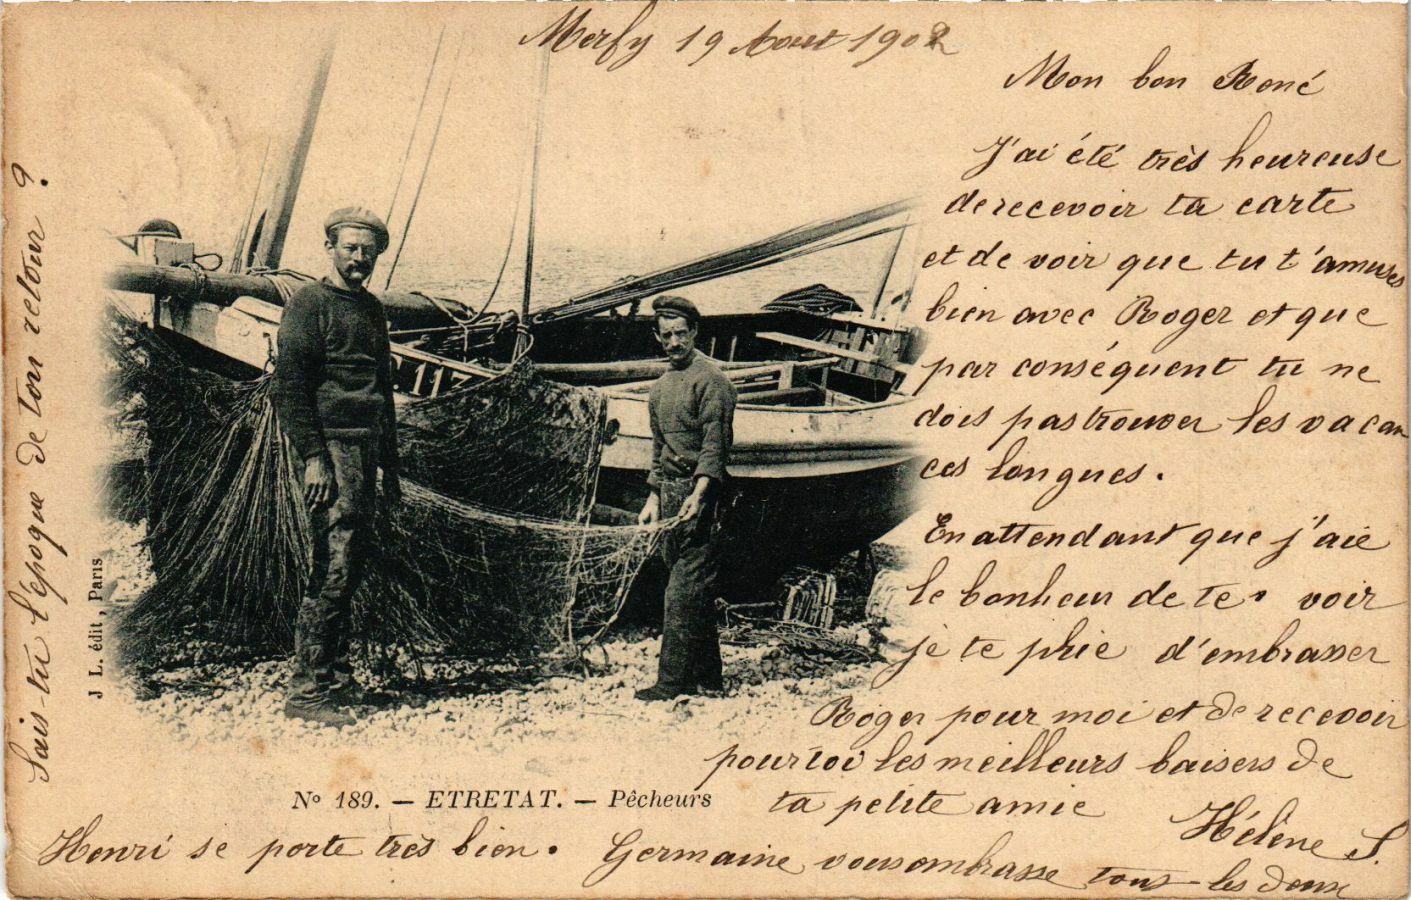 Merfy 19 Aout 1902
Mon bon René
J'ai été très heureuse
de recevoir ta carte
et de voir que tu t'amuses
bien avec Roger et que
par conséquent tu ne
dois pas trouver les vacan
ces longues.
En attendant que j'aie
le bonheur de te voir
je te prie d'embrasser
Roger pour moi et de recevoir
pour toi les meilleurs baisers de
ta petite amie
Hélène S.
Henri se porte très bien. Germaine vous embrasse tous les deux
Sais-tu l'époque de ton retour ?
J L. édit, Paris
No 189. — ETRETAT. — Pêcheurs
117